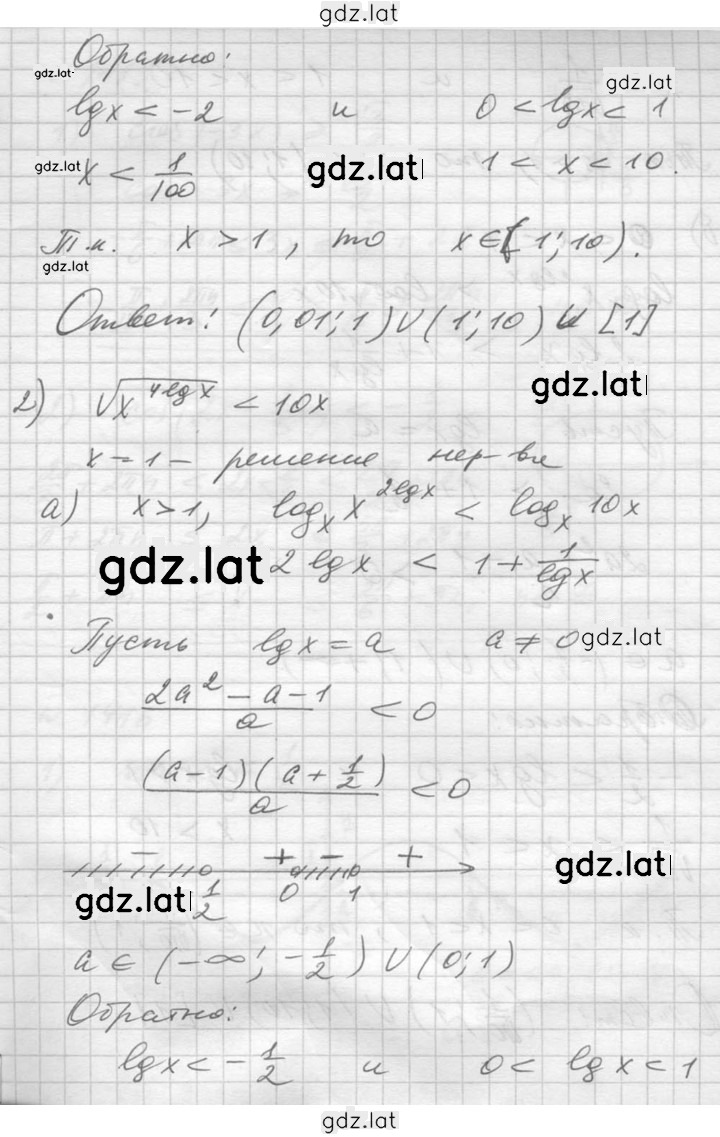 gdz.lat
Обратно:
gdz.lat gdz.lat
lg x < -2 и 0 < lg x < 1
gdz.lat x < 1/100 gdz.lat 1 < x < 10.
Т.к. x > 1, то x ∈ (1; 10).
gdz.lat
Ответ: (0,01; 1) ∪ (1; 10) ∪ [1]
gdz.lat
2) √x^(4lg x) < 10x
x = 1 – решение нер-ва
а) x > 1, log_x x^(2lg x) < log_x 10x
gdz.lat 2 lg x < 1 + 1/lg x
Пусть lg x = a a ≠ 0 gdz.lat
(2a² - a - 1)/a < 0
((a - 1)(a + 1/2))/a < 0
- + - +
gdz.lat 1/2 0 1 gdz.lat
a ∈ (-∞; -1/2) ∪ (0; 1)
Обратно:
lg x < -1/2 и 0 < lg x < 1
gdz.lat